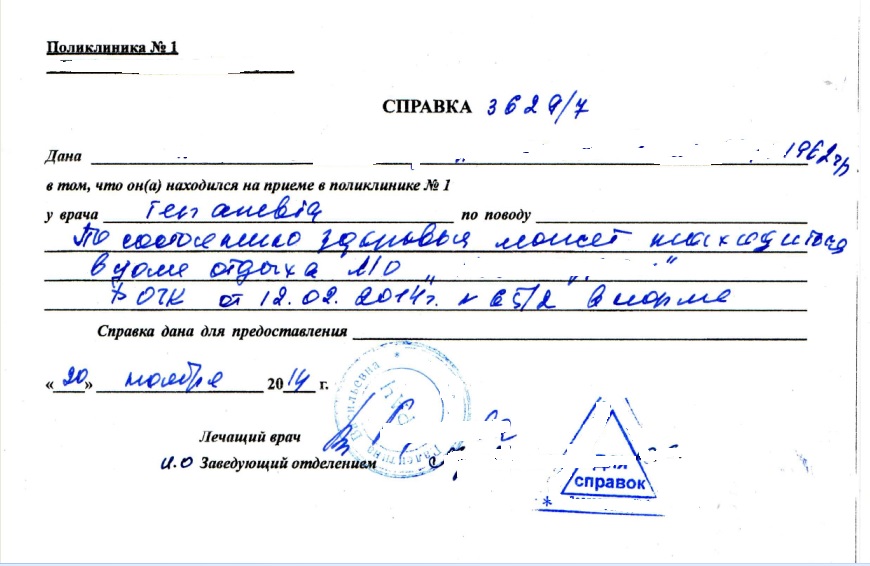 Поликлиника № 1
СПРАВКА 3629/7
Дана 1962 гр
в том, что он(а) находился на приеме в поликлинике № 1
у врача по поводу
По состоянию здоровья может находиться
в доме отдыха М/О " "
от 12.02.2014г. в норме
Справка дана для предоставления
«20» ноября 2014 г.
Лечащий врач
и.о Заведующий отделением
Валентина Васильевна
для
справок